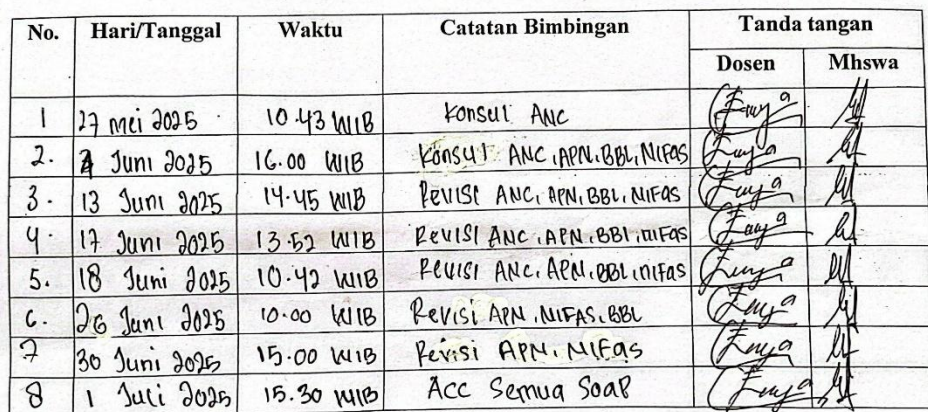 No. Hari/Tanggal Waktu Catatan Bimbingan Tanda tangan
Dosen Mhswa
1 27 mei 2025 10.43 WIB Konsul ANC
2. Juni 2025 16.00 WIB Konsul ANC, APN, BBL, NIFas
3. 13 Juni 2025 14.45 WIB REVISI ANC, APN, BBL, NIFas
4. 17 Juni 2025 13.52 WIB REVISI ANC, APN, BBl, nIFas
5. 18 Juni 2025 10.42 WIB Revisi ANC, APN, BBL, nifas
6. 26 Juni 2025 10.00 WIB Revisi APN, NIFAS, BBL
7 30 Juni 2025 15.00 WIB Revisi APN, NIFas
8 1 Juli 2025 15.30 WIB Acc Semua SOAP